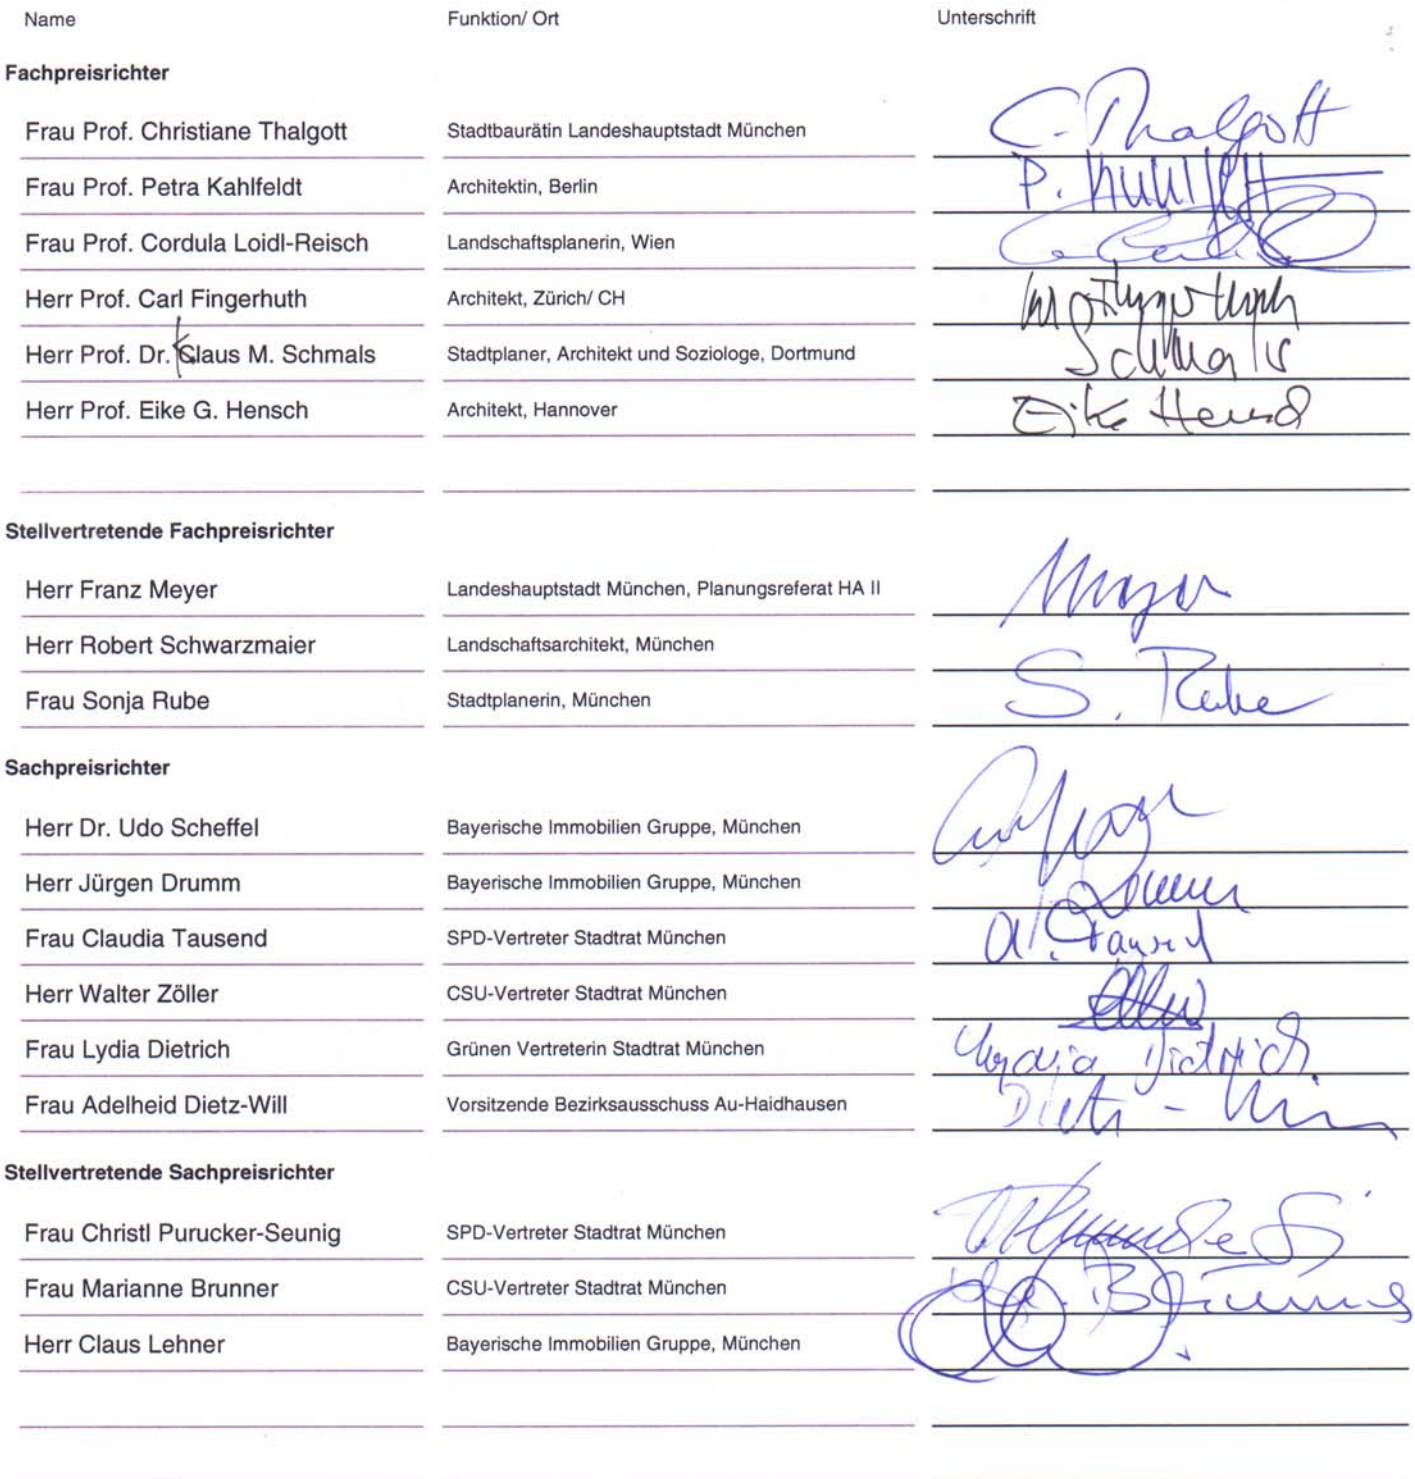 Name Funktion/ Ort Unterschrift
Fachpreisrichter
Frau Prof. Christiane Thalgott Stadtbaurätin Landeshauptstadt München C. Thalgott
Frau Prof. Petra Kahlfeldt Architektin, Berlin P.
Frau Prof. Cordula Loidl-Reisch Landschaftsplanerin, Wien
Herr Prof. Carl Fingerhuth Architekt, Zürich/ CH
Herr Prof. Dr. Klaus M. Schmals Stadtplaner, Architekt und Soziologe, Dortmund Schmals
Herr Prof. Eike G. Hensch Architekt, Hannover Eike Hensch
Stellvertretende Fachpreisrichter
Herr Franz Meyer Landeshauptstadt München, Planungsreferat HA II Meyer
Herr Robert Schwarzmaier Landschaftsarchitekt, München
Frau Sonja Rube Stadtplanerin, München S. Rube
Sachpreisrichter
Herr Dr. Udo Scheffel Bayerische Immobilien Gruppe, München
Herr Jürgen Drumm Bayerische Immobilien Gruppe, München Drumm
Frau Claudia Tausend SPD-Vertreter Stadtrat München Tausend
Herr Walter Zöller CSU-Vertreter Stadtrat München
Frau Lydia Dietrich Grünen Vertreterin Stadtrat München Lydia Dietrich
Frau Adelheid Dietz-Will Vorsitzende Bezirksausschuss Au-Haidhausen Dietz-Will
Stellvertretende Sachpreisrichter
Frau Christl Purucker-Seunig SPD-Vertreter Stadtrat München
Frau Marianne Brunner CSU-Vertreter Stadtrat München Brunner
Herr Claus Lehner Bayerische Immobilien Gruppe, München